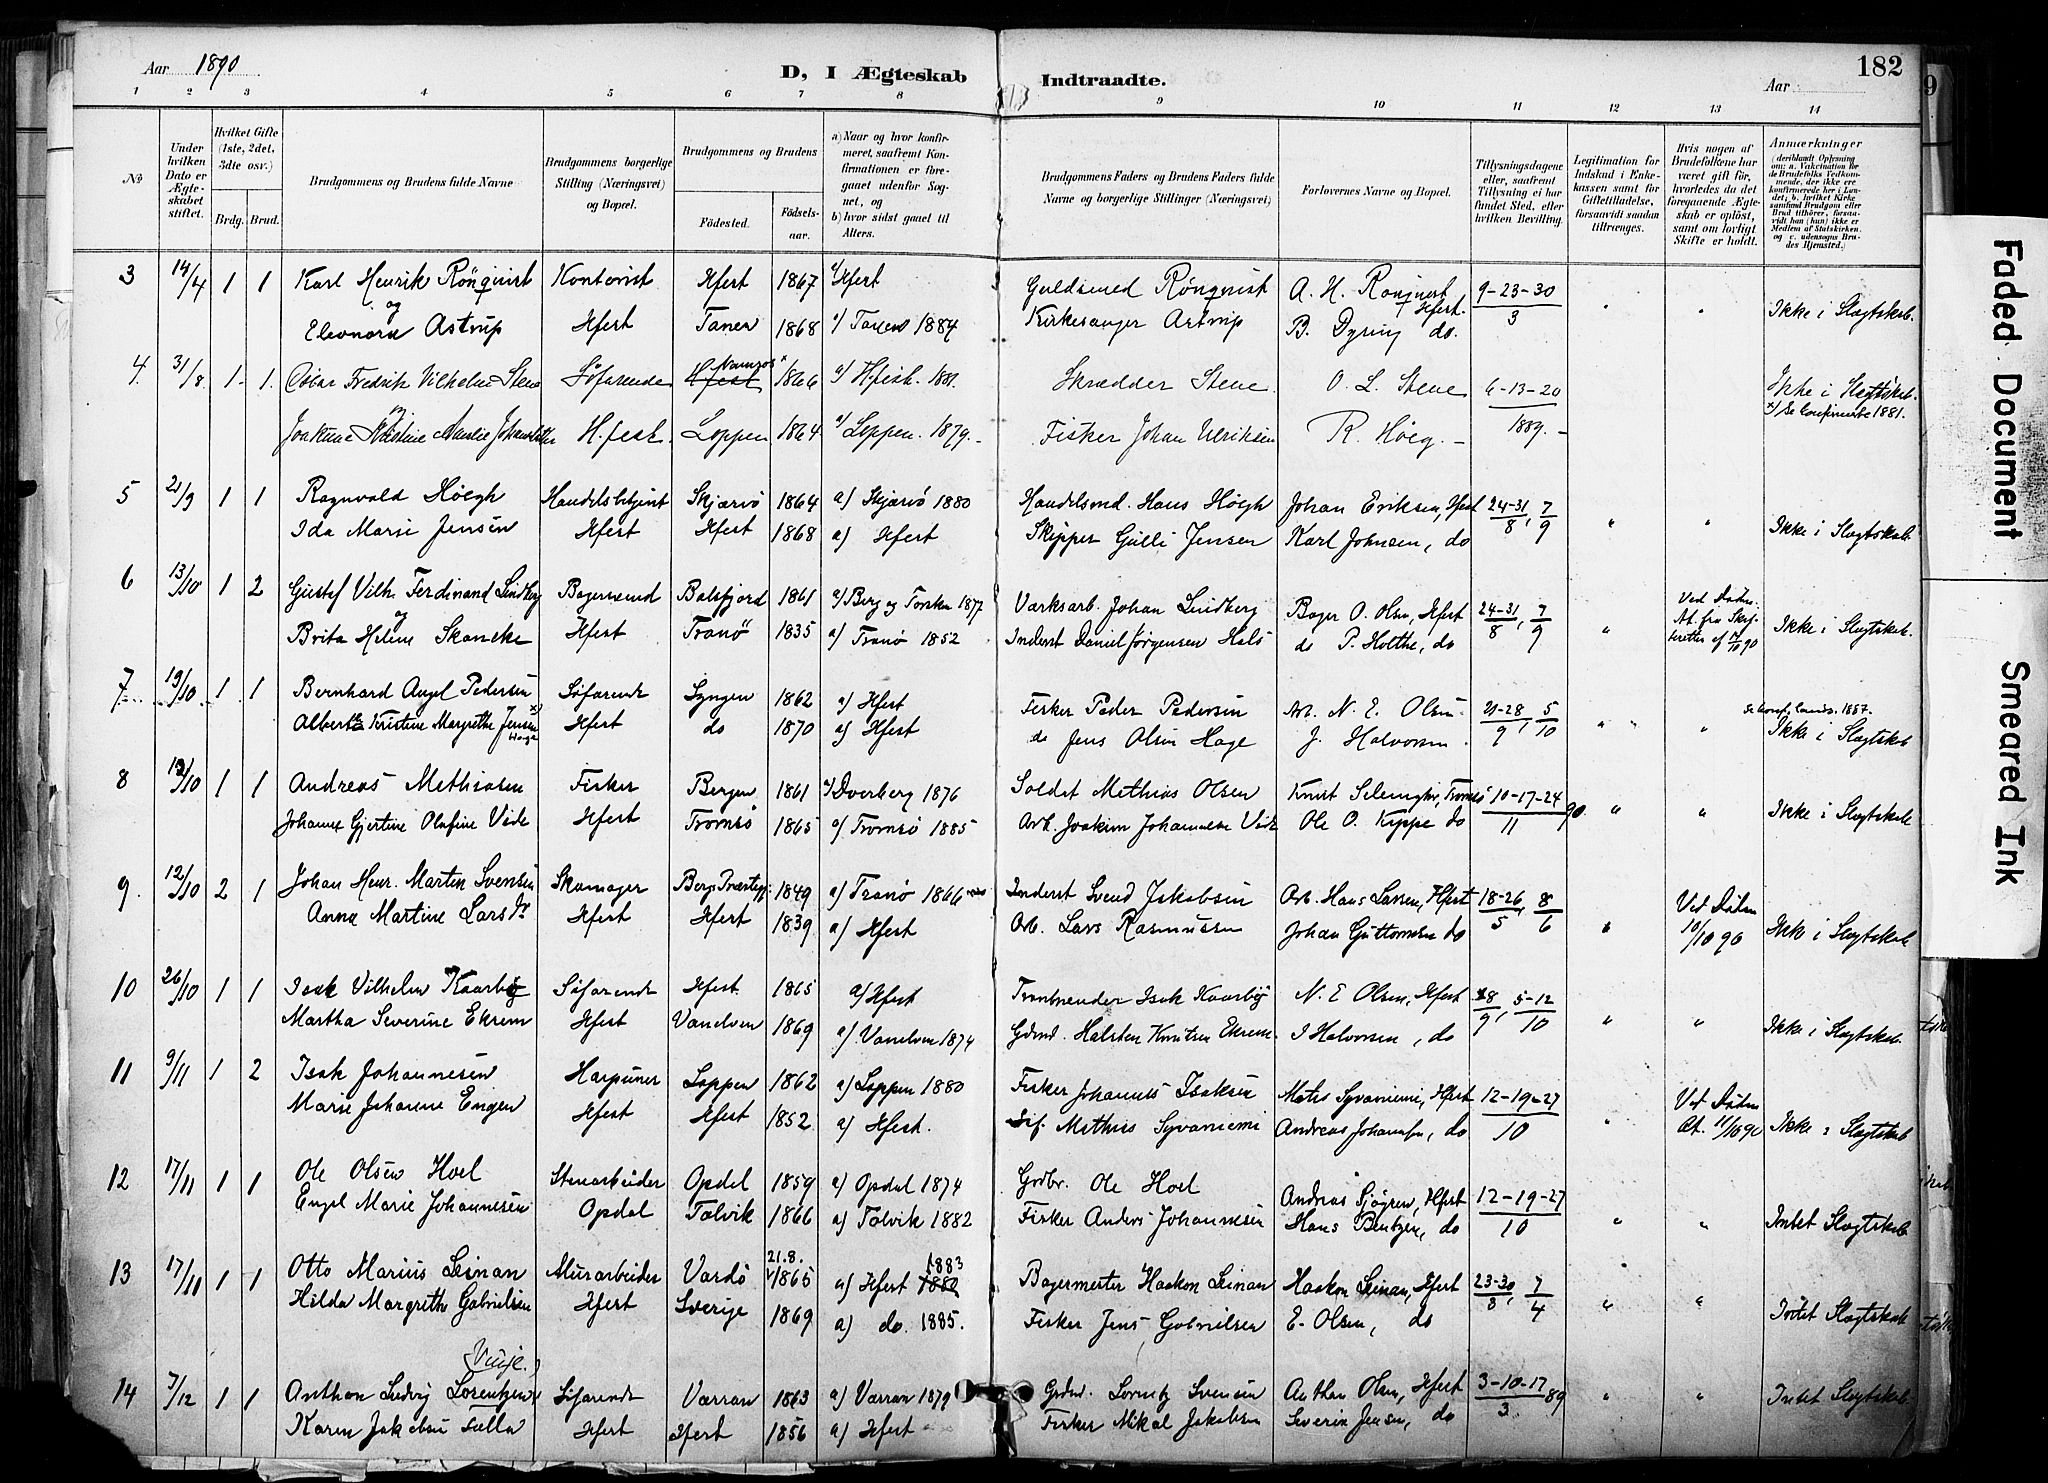 Aar 1890
D, I Ægteskab Indtraadte.
182
Aar
1 2 3 4 5 6 7 8 9 10 11 12 13 14
No
Under hvilken Dato er Ægteskabet stiftet.
Hvilket Gifte (1ste, 2det, 3die osv.)
Brdg. Brud.
Brudgommens og Brudens fulde Navne
Brudgommens borgerlige Stilling (Næringsvei) og Bopæl.
Brudgommens og Brudens
Fødested. Fødselsaar.
a) Naar og hvor konfirmeret, saafremt Konfirmationen er foregaaet udenfor Sognet, og
b) hvor sidst gaaet til Alters.
Brudgommens Faders og Brudens Faders fulde Navne og borgerlige Stillinger (Næringsvei)
Forlovernes Navne og Bopæl.
Tillysningsdagene eller, saafremt Tillysning ei har fundet Sted, efter hvilken Bevilling.
Legitimation for Indskud i Enkekassen samt for Giftetilladelse, forsaavidt saadan tiltrænges.
Hvis nogen af Brudefolkene har været gift før, hvorledes da det foregaaende Ægteskab er opløst, samt om lovligt Skifte er holdt.
Anmærkninger
3 14/4 1 1 Karl Henrik Rönqvist Kontorist Hfest 1867 Hfest Guldsmed Rönqvist A. H. Ronqvist Hfest. 9-23-30
og
Eleonora Astrup Hfest Tanen 1868 a) Tanen 1884 Kirkesanger Astrup B. Dyring do. 3 " " Ikke i Slægtskab.
4. 31/8 1. 1. Oskar Fredrik Vilhelm Stene Söfarende Hfest 1866 a) H.fest. 1881. Skrædder Stene. O. L. Stene 6-13-20 Ikke i Slægtskab.
x) Se Confirmerte 1881.
H.fest. Loppen 1864 a) Loppen. 1879. Fisker Johan Ulriksen R. Höeg. 1889.
5 21/9 1 1 Ragnvald Höegh Handelsbetjent Skjærvö 1864 a) Skjærvö 1880 Handelsmd. Hans Höegh Johan Eriksen, Hfest 24-31/8, 7/9
Ida Marie Jensen Hfest Hfest 1868 a) Hfest Skipper Gülli Jensen Karl Johnsen, do " " Ikke i Slægtskab
6 13/10 1 2 Gustaf Vilh. Ferdinand Lindberg Bagersvend Balsfjord 1861 a) Berg og Torsken 1877 Værksarb. Johan Lindberg Bager O. Olsen, Hfest 24-31/8, 7/9 Ved Døden.
og
Brita Helene Skancke Hfest Tranö 1835 a) Tranö 1852 Inderst Daniel Jörgensen Hals do P. Holthe, do " Ikke i Slægtskab.
7 19/10 1 1 Bernhard Angel Pedersen Söfarende Lyngen 1862 a) Hfest Fisker Peder Pedersen Arb. N. E. Olsen. 21-28/9, 5/10
Alberta Kristine Margrethe Jensen Hfest do 1870 a) Hfest do Jens Olsen Hage J. Halvorsen. " " Ikke i Slægtskab
8 12/10 1 1 Andreas Mathiasen Fisker Bergen 1861 a) Dverberg 1876 Soldat Mathias Olsen 10-17-24
Hfest Tromsö 1865 a) Tromsö 1885 Ole O. Kippe do 11 90. " " Ikke i Slægtskab
9. 12/10 2 1 Johan Henr. Martin Svensen Skomager 1849 a) Tranö 1866 Inderst Svend Jakobsen Arb. Hans Larsen, Hfest 18-26/5, 8/6 Ved Døden 10/10 90
Anna Martine Larsdr Hfest Hfest 1839 a) Hfest Arb. Lars Rasmussen Johan Guttormsen do " Ikke i Slægtskab
10 26/10 1 1 Isak Vilhelm Kaarbö Söfarende Hfest. 1865 a) Hfest Isak Kaarbö N. E Olsen, Hfest 28/9, 5-12/10
Martha Severine Ekrem Hfest Vanelven 1869 a) Vanelven 1874 Gdmd. Halsten Knutsen Ekrem. I Halvorsen, do " " Ikke i Slægtskab
11 9/11 1 2 Isak Johannesen Harpuner Loppen 1862 a) Loppen 1880 Fisker Johannes Isaksen Mates Syvaniemi, Hfest 12-19-27 Ved Døden
Marie Johanne Engen Hfest Hfest 1852. a) Hfest. Mathias Syvaniemi Andreas Johansen, do 10 " At. 11/10 90 Ikke i Slægtskab
12 17/11 1 1 Ole Olsen Hoel Stenarbeider Opdal 1859 a) Opdal 1874 Grdbr. Ole Hoel Andreas Sjögren, Hfest 12-19-27
Engel Marie Johannesen Opdal Talvik 1866 a) Talvik 1882 Fisker Anders Johannesen Hans Bentzen, do 10 " " Intet Slægtskab
13 17/11 1 1 Otto Marius Leinan Murarbeider Vardö 21.8. 1865 a) Hfest 1883 1880 Bagermester Haakon Leinan Haakon Leinan, Hfest 23-30/3, 7/4
Hilda Margrethe Gabrielsen Hfest Sverige 1869 a) do. 1885. Fisker Jens Gabrielsen E. Olsen, do " " Intet Slægtskab
14 7/12 1 1 Anthon Ludvig Lorentzen Söfarende Værran 1863 a) Værran 1879 Grdmd. Lorentz Svensen Anthon Olsen, Hfest 3-10-17 89
Karen Jakobine Falla Hfest Hfest 1856 a) Hfest Fisker Mikal Jakobsen Severin Jensen, do 3 " " Intet Slægtskab
Faded Document
Smeared Ink